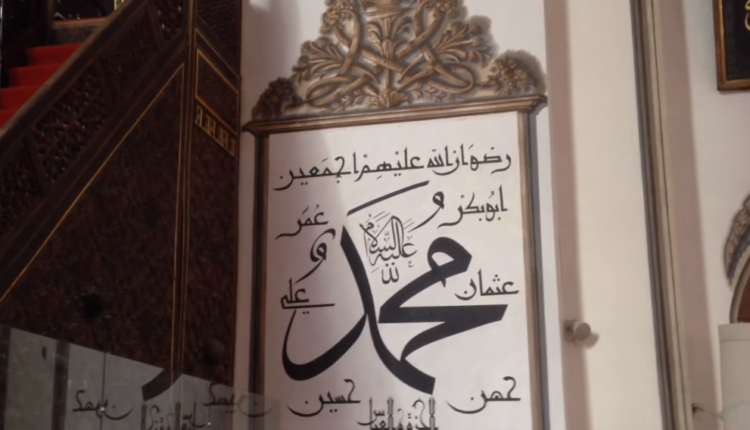 رضوان الله عليهم اجمعين
ابوبكر
عمر
محمد
عليه السلام
عثمان
علي
حسن
حسين